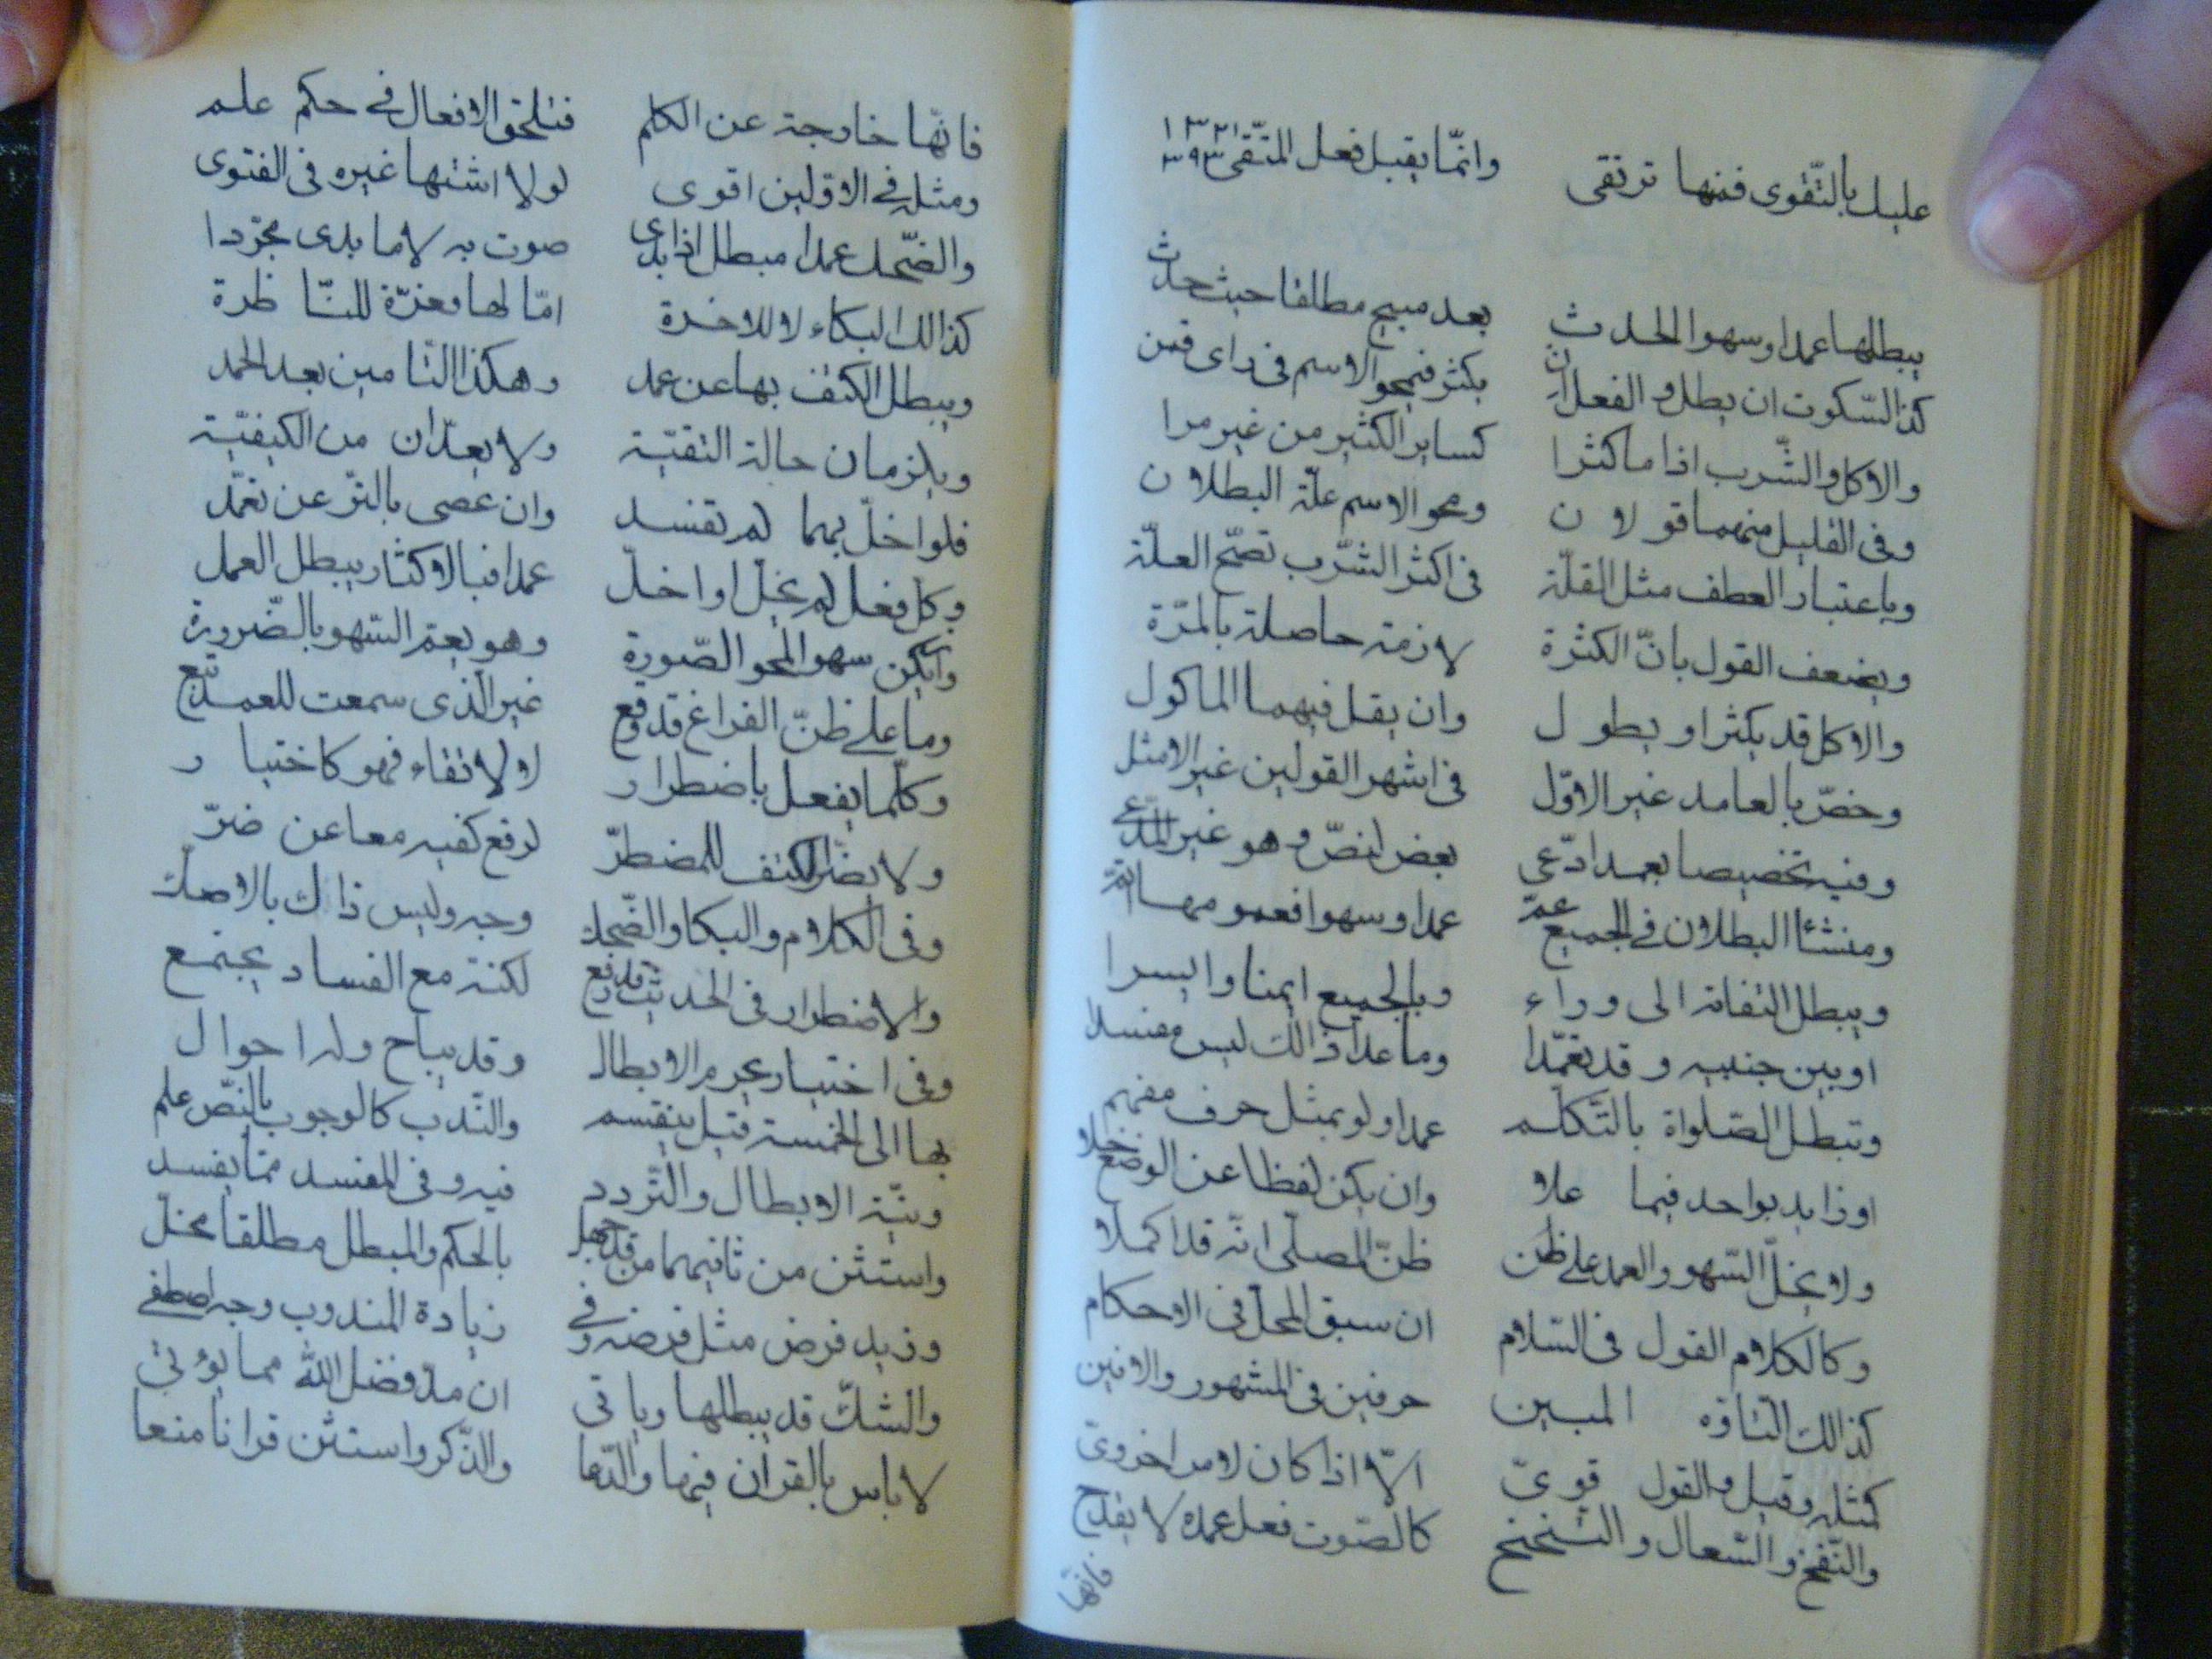 عليك بالتّقوى فمنها ترتقى وانمّا يقبل فعل المتّقى
يبطلها عمدا وسهوا الحدث بعد مبيح مطلقا حيث حدث
كذا السّكوت ان يطل والفعل ان يكثر فيمحو الاسم فى راى قمن
والاكل والشّرب اذا ما كثرا كساير الكثير من غير مرا
وفى القليل منهما قولان ومحو الاسم علّة البطلان
وباعتبار العطف مثل القلّة فى اكثر الشّرب تصحّ العلّة
ويضعف القول بانّ الكثرة لازمة حاصلة بالمرّة
والاكل قد يكثر او يطول وان يقل فيهما الماكول
وخصّ بالعامد غير الاوّل فى اشهر القولين غير الامثل
وفيه تخصيصا بعمد ادّعى بعض لنصّ وهو غير المدّعى
ومنشئا البطلان فى الجميع عمّ عمدا وسهوا فعمومها اتمّ
ويبطل التفاته الى وراء وبالجميع ايمنا وايسرا
او بين جنبيه وقد تعمّدا وما عدا ذالك ليس مفسدا
وتبطل الصّلواة بالتّكلّم عمدا ولو بمثل حرف مفهم
او زايد بواحد فيما علا وان يكن لفظا عن الوضع خلا
ولا يخلّ السّهو والعمد على ظن ظنّ المصلّى انّه قد اكملا
وكالكلام القول فى السّلام ان سبق المحلّ فى الاحكام
كذالك التّاوّه المبين حرفين فى المشهور والانين
كمثله وقيل والقول قوىّ الّا اذا كان لامر اخروىّ
والنّفخ والسّعال والتّنحنح كالصّوت فعل عمده لا يقدح
فانّها
فانّها خارجة عن الكلم فتلحق الافعال فى حكم علم
ومثله فى الاوّلين اقوى لولا اشتها غيره فى الفتوى
والضّحك عمدا مبطل اذا بدى صوت به لا ما بدى مجّردا
كذالك البكاء لا للاخرة امّا لها فعزّة للنّاظرة
ويبطل الكتف بها عن عمد وهكذا التّامين بعد الحمد
ويلزمان حالة التقيّة ولا يعدّان من الكيفيّة
فلو اخلّ بهما لم تفسد وان عصى بالترّ عن تعمّد
وكلّ فعل لم يخلّ او اخلّ عمدا فبالاكثار يبطل العمل
وان يكن سهوا لمحو الصّورة وهو يعم السّهو بالضّرورة
وما على ظنّ الفراغ قد وقع غير الّذى سمعت للعمد تبع
وكلّما يفعل باضطرار او لاتقاء فهو كاختيار
ولا يضّر الكتف للمضطرّ لرفع كفيه معا عن ضرّ
وفى الكلام والبكا والضّحك وجه وليس ذاك بالاصكّ
والاضطرار فى الحديث قد رفع لكنّه مع الفساد يجتمع
وفى اختيار يحرم الابطال وقد يباح وله احوال
بها الى الخمسة قبل ينقسم والنّدب كالوجوب بالنصّ علم
ونيّة الابطال والتّردد فيه وفى المفسد ممّا يفسد
واستثن من ثانيهما من قد جهل بالحكم والمبطل مطلقا يخلّ
وزيد فرض مثل فرضه وفى زيادة المندوب وجه اصطفى
والشكّ قد يبطلها وياتى ان مدّ فضل اللّه مما يؤتى
لا باس بالقران فيها والدّعا والذّكر واستثن قرانا منعا